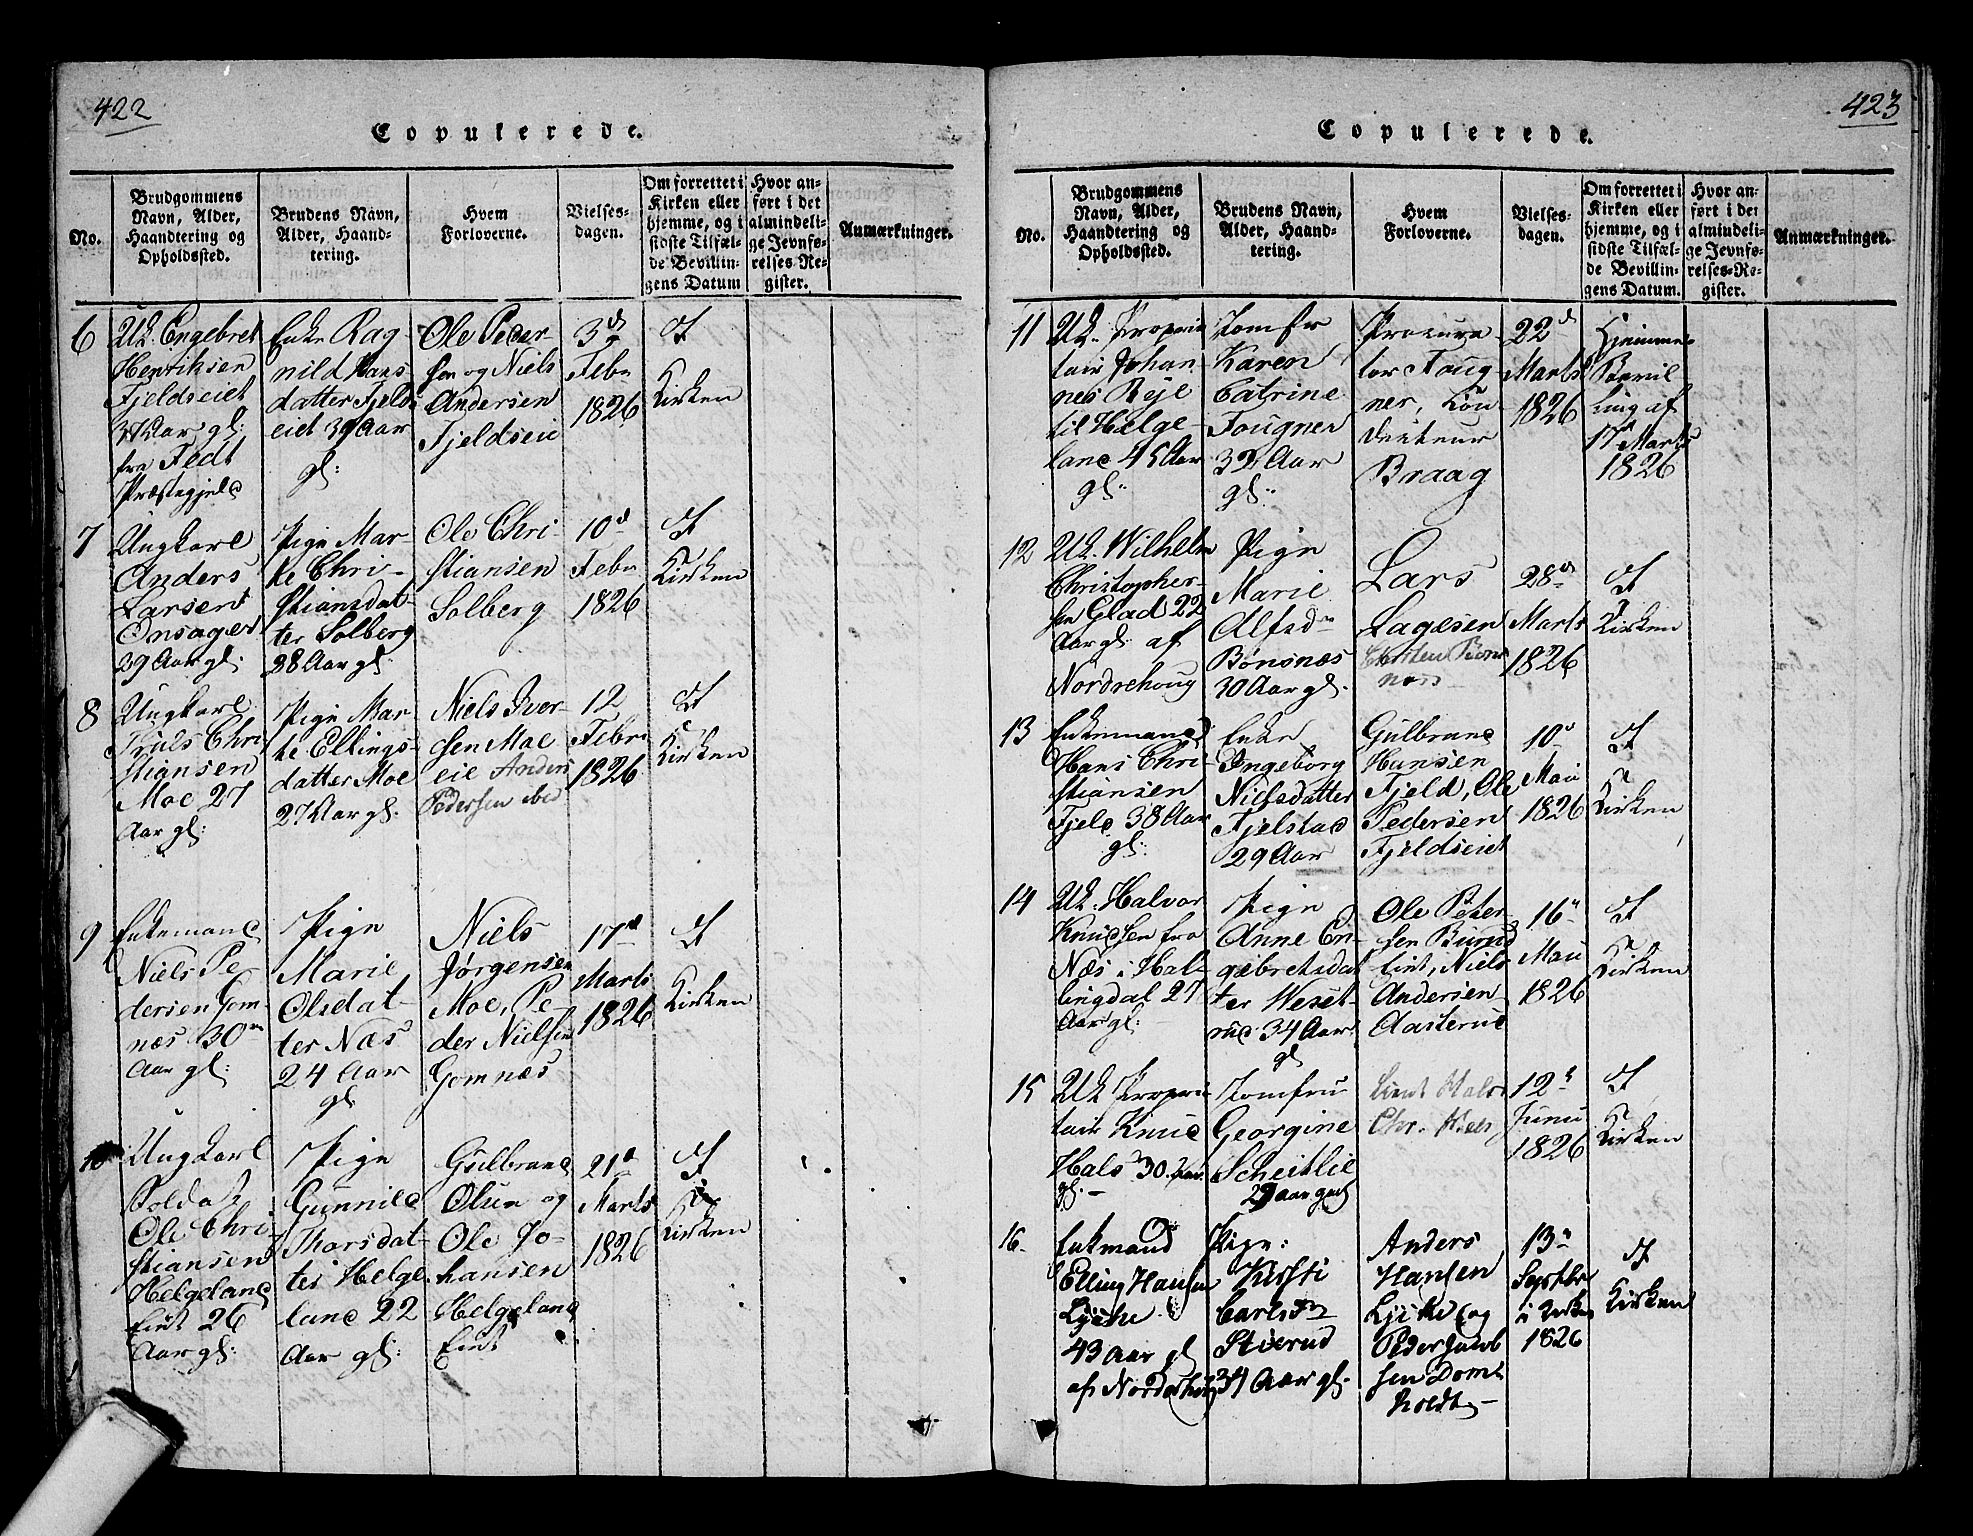 422
Copulerede.
No.
Brudgommens
Navn, Alder,
Haandtering og
Opholdssted.
Brudens Navn,
Alder, Haand-
tering.
Hvem
Forloverne.
Vielses-
dagen.
Om forrettet i
Kirken eller
hjemme, og i
sidste Tilfæl-
de Bevillin-
gens Datum
Hvor an-
ført i det
almindeli-
ge Jevnfø-
relses-Re-
gister.
Anmærkninger.
6
Uk. Engebret
Henriksen
Fjeldseiet
37 Aar gl:
fra Fedt
Præstegjeld
Enke Rag-
nild Hans-
datter Fjelds
eiet 39 Aar
gl:
Ole Peder-
sen og Niels
Andersen
Fjeldseie
3d
Febr
1826
I
Kirken
7
Ungkarl
Anders
Larsen
Onsager
29 Aar gl:
Pige Mar-
te Chri-
stiansdat-
ter Solberg
28 Aar gl:
Ole Chri-
stiansen
Solberg
10d
Febr
1826
I
Kirken
8
Ungkarl
Truls Chri
stiansen
Moe 27
Aar gl:
Pige Mar-
te Ellings-
datter Moe
27 Aar gl:
Niels Iver-
sen Moe
eie Anders
Pedersen ibid
12
Febr
1826
I
Kirken
9
Enkemand
Niels Pe-
dersen Gom-
næs 30
Aar gl:
Pige
Marie
Olsdat-
ter Næs
24 Aar
gl
Niels
Jørgensen
Moe, Pe-
der Nielsen
Gomnæs
17d
Marts
1826
I
Kirken
10
Ungkarl
Soldat
Ole Chri-
stiansen
Helgeland
Eiet 26
Aar gl:
Pige
Gunnild
Thorsdat-
ter Helge-
land 22
Aar gl:
Gulbrand
Olsen og
Ole Jo-
hansen
Helgeland
Eiet
21d
Marts
1826
I
Kirken
423
Copulerede.
No.
Brudgommens
Navn, Alder,
Haandtering og
Opholdssted.
Brudens Navn,
Alder, Haand-
tering.
Hvem
Forloverne.
Vielses-
dagen.
Om forrettet i
Kirken eller
hjemme, og i
sidste Tilfæl-
de Bevillin-
gens Datum.
Hvor an-
ført i det
almindeli-
ge Jevnfø-
relses-Re-
gister.
Anmærkninger.
11
Uk. Proprie
tair Johan
nes Reje
til Helge-
land 45 Aar
gl:
Jomfr
Karen
Catrine
Fougner
32 Aar
gl:
Procura
tor Foug
ner, Con
ducteur
Braag
22d
Marts
1826
Hjemme
Bevil
ling af
17 Marts
1826
12
Uk. Wilhelm
Christopher-
sen Glad 22
Aar gl: af
Nordrehoug
Pige
Marie
Alfsdr
Bønsnæs
30 Aar gl.
Lars
Lagesen
28d
Marts
1826
I
Kirken
13
Enkemand
Hans Chri-
stiansen
Fjeld 38 Aar
gl:
Enke
Ingeborg
Nielsdatter
Fjelstad
29 Aar
Gulbrand
Hansen
Fjeld, Ole
Pedersen
Fjeldseiet
10d
Mai
1826
I
Kirken
14
Uk. Halvor
Knudsen fra
Næs i Hal-
lingdal 27
Aar gl:
Pige
Anne En-
gebretsdat
ter Weset-
rud 34 Aar
gl
Ole Peter-
sen
Niels
Andersen
Aasterud
16
Mai
1826
I
Kirken
15
Uk Proprie
tair Knud
Hals 30. Aar
gl. -
Jomfru
Georgine
Scheitlie
29 Aar gml
Hals
Chr.
12
Juni
1826
I
Kirken
16.
Enkmand
Elling Hansen
43 Aar gl
af Norderhoug
Pige:
Kirsti
Carlsdr
Stixrud
34 Aar gl.
Anders
Hansen
og
Peder Jacob
sen Dom
holdt -
13
Septbr
i Kirken
1826
I
Kirken